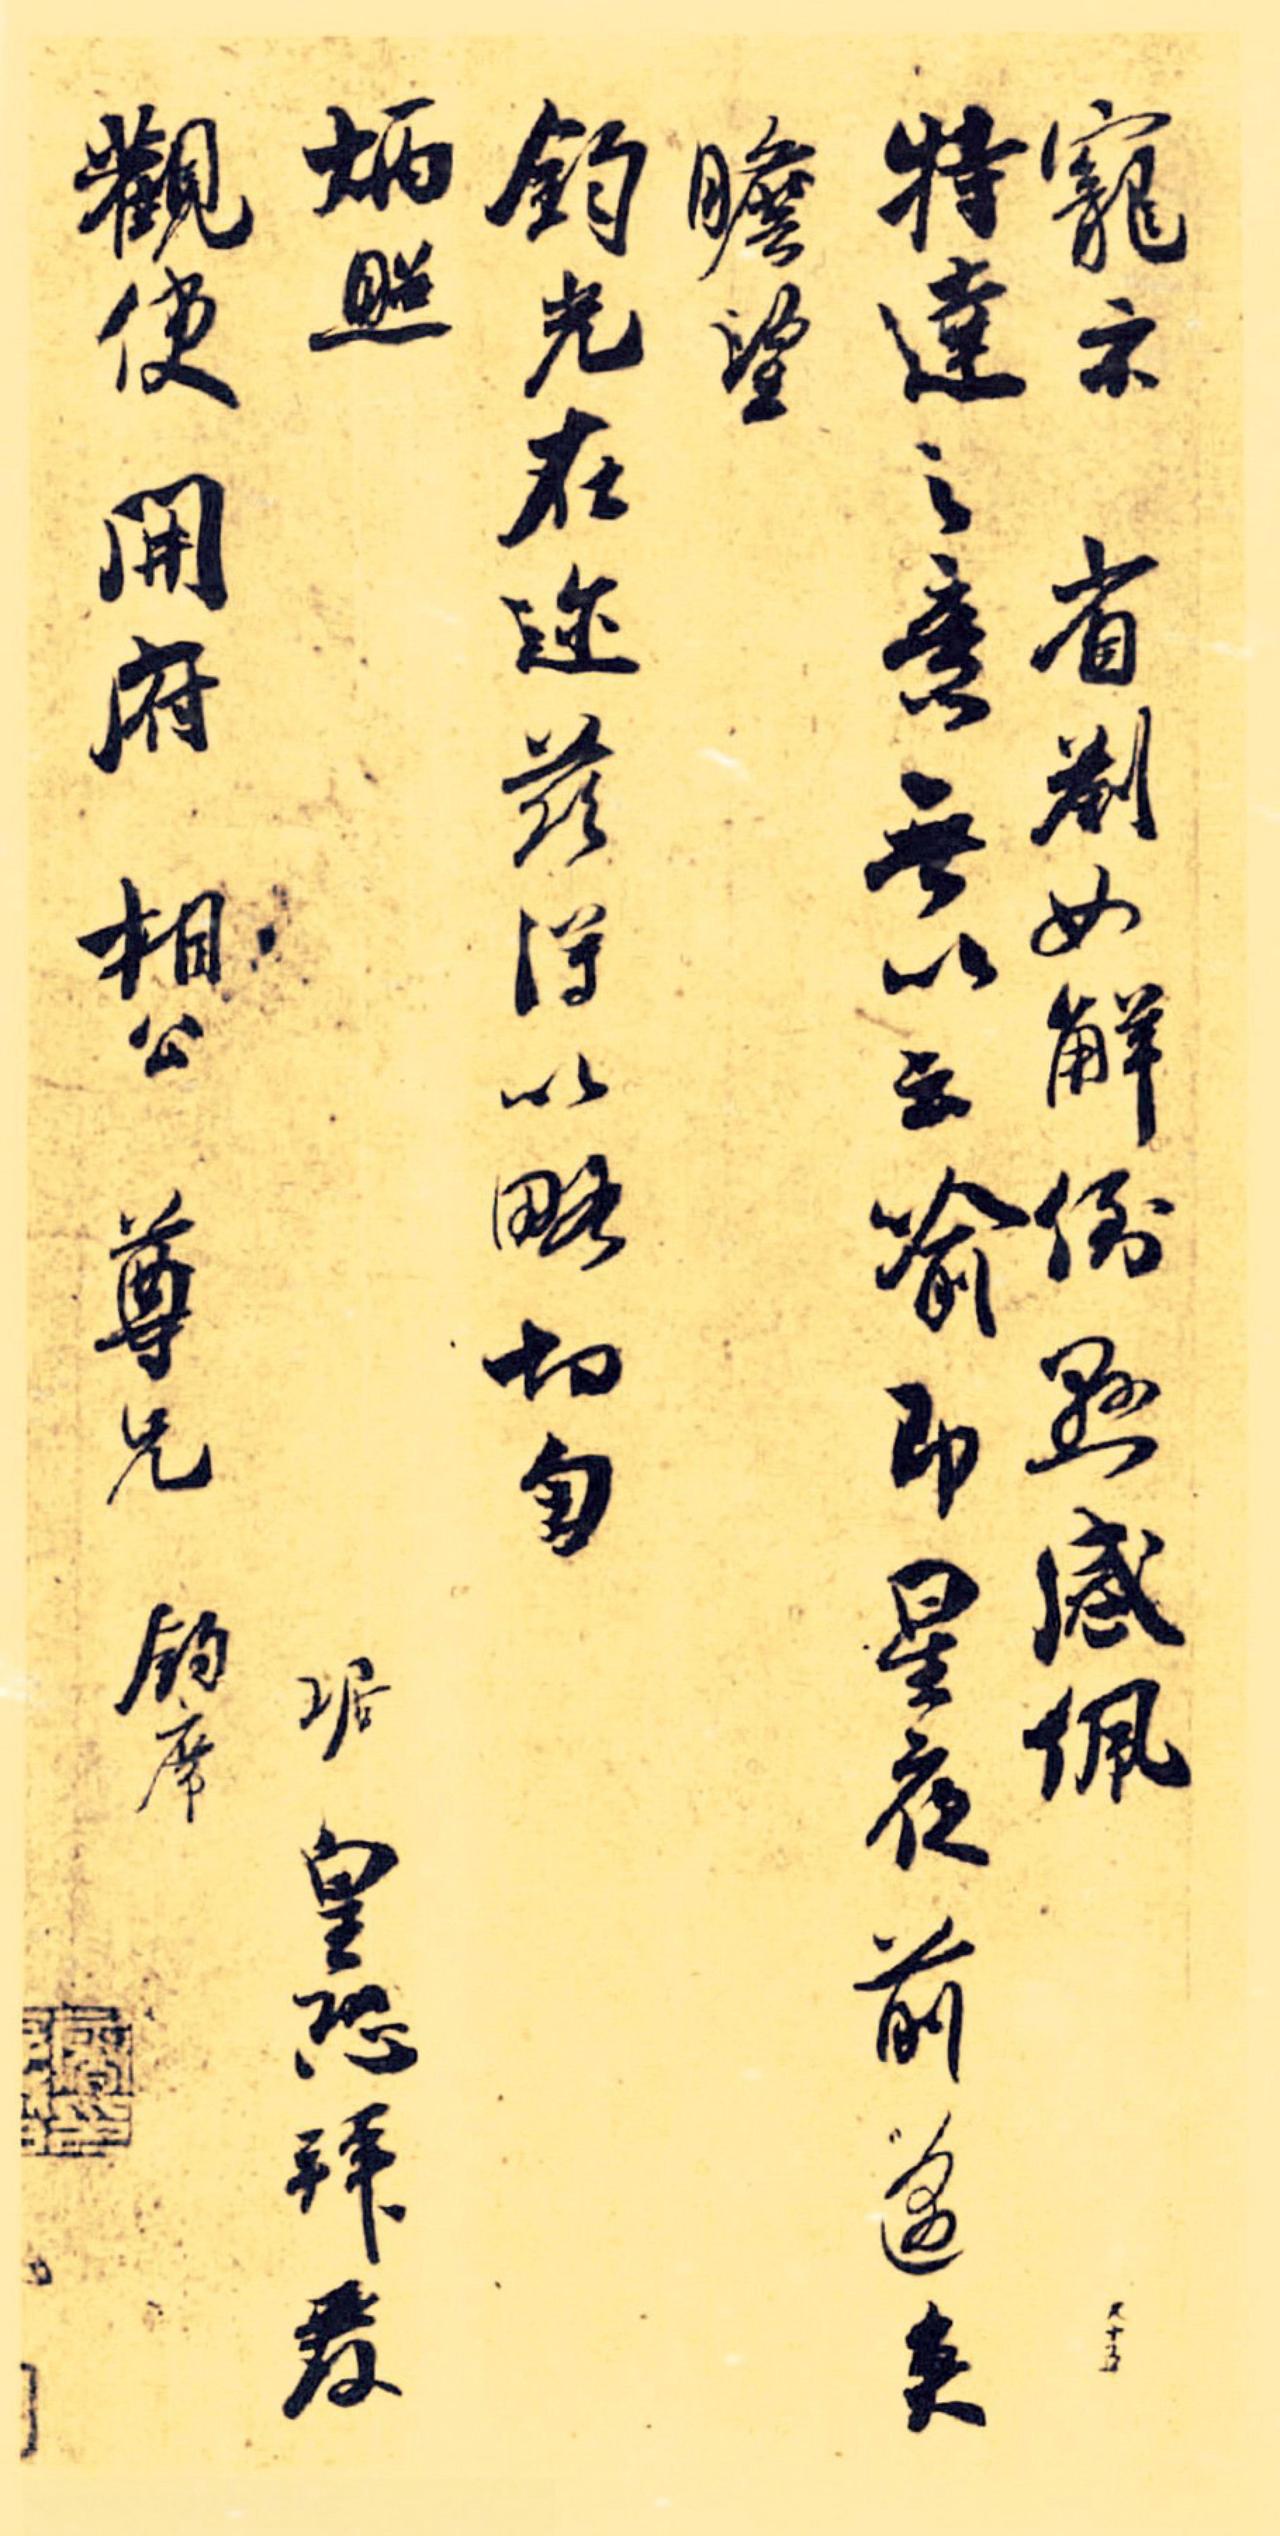 寵示 省劄如解倒懸感佩
特達之意無以云喻即星夜前邁矣
瞻望
鈞光在邇茲得以略切勿
炳照
琚 皇恐拜覆
觀使 開府 相公 尊兄 鈞席